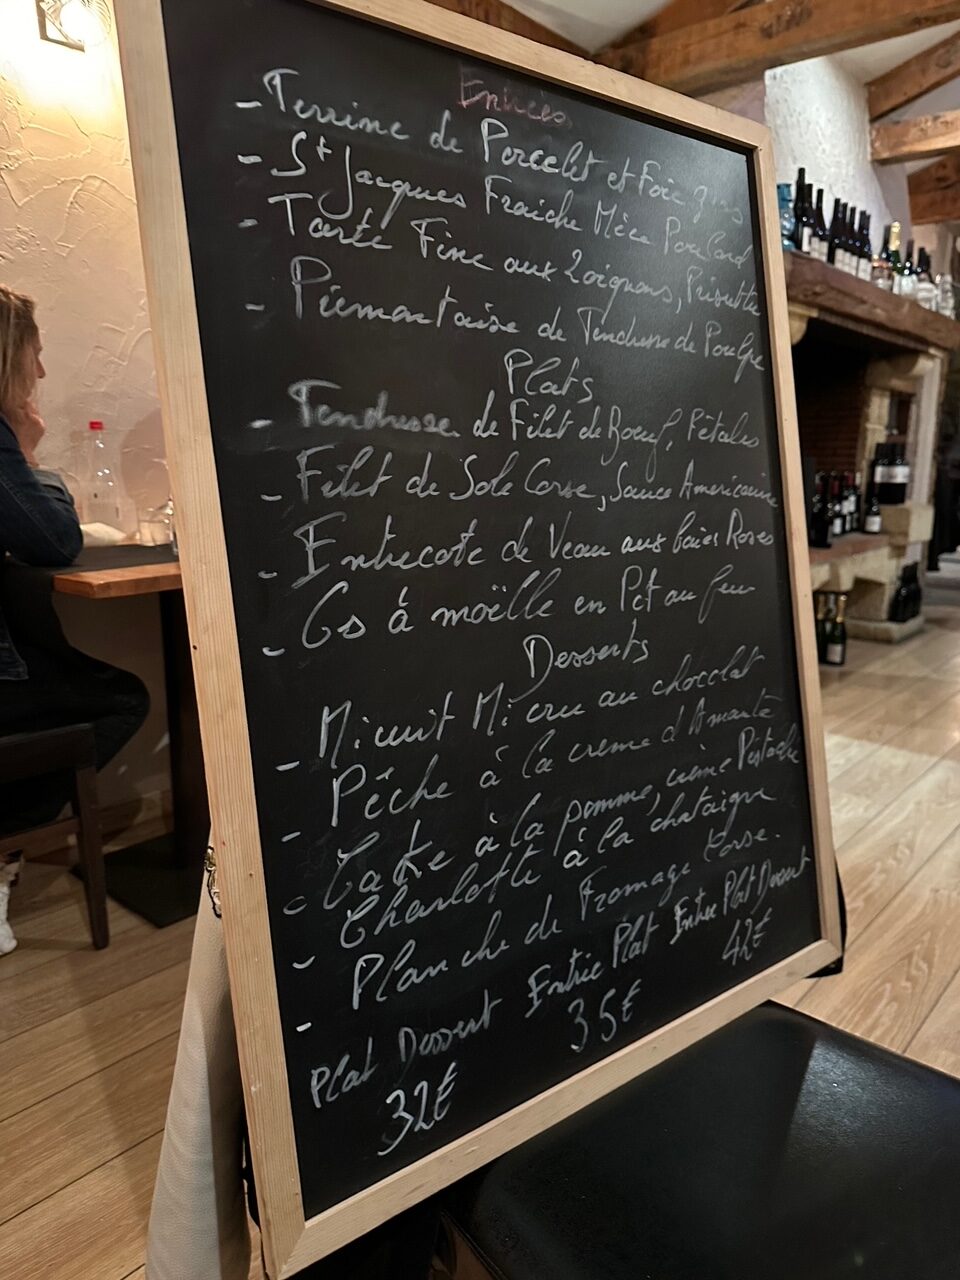 Entrées
- Terrine de Porcelet et Foie gras
- St Jacques Fraiche Mère Poulard
- Tarte Fine aux 2 oignons,
- Piémontaise de Tendresse de Poulpe
Plats
- Tendresse de Filet de Boeuf, Pétales
- Filet de Sole Corse, Sauce Americaine
- Entrecote de Veau aux baies Roses
- Os à moëlle en Pot au feu
Desserts
- Mi cuit Mi cru au chocolat
- Pêche à la creme d'Amante
- Cake à la pomme, crème Pistache
- Charlotte à la chataigne
- Planche de Fromage Corse.
Plat Dessert Entrée Plat Entrée Plat Dessert
32€ 35€ 42€